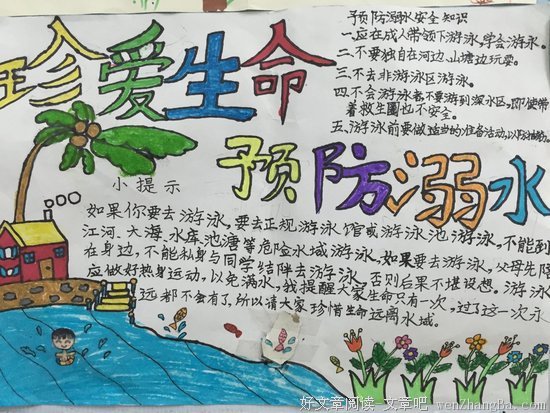 珍爱生命
预防溺水
预防溺水安全知识
一.应在成人带领下游泳,学会游泳。
二.不要独自在河边、山塘边玩耍。
三.不去非游泳区游泳。
四.不会游泳者不要游到深水区,即使带
着救生圈也不安全。
五、游泳前要做适当的准备活动,以防抽筋。
小提示
如果你要去游泳,要去正规游泳馆或游泳池游泳,不能到
江河、大海、水库池塘等危险水域游泳,如果要去游泳,父母先陪
在身边,不能私身与同学结陪去游泳,否则后果不堪设想。游泳
应做好热身运动,以免溺水,我提醒大家生命只有一次,过了这一次,永
远都不会有了,所以请大家珍惜生命远离水域。
好文章阅读-文章吧-wenZhangBa.com